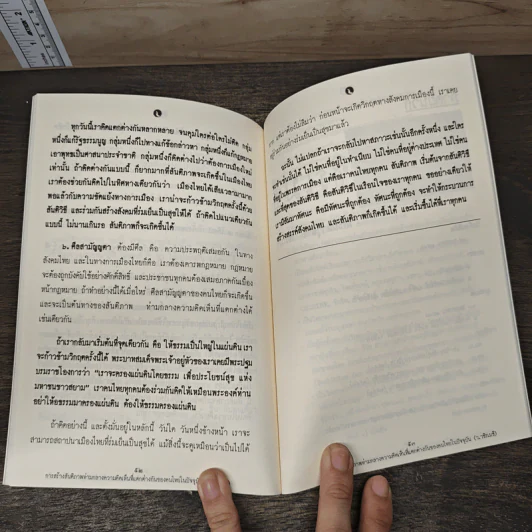 ทุกวันนี้เราคิดแตกต่างกันหลากหลาย จนคุมใครต่อใครไม่ติด กลุ่ม
หนึ่งก็แก้รัฐธรรมนูญ กลุ่มหนึ่งก็ไปหาแก้ข้อกล่าวหา กลุ่มหนึ่งก็แก้กฎหมาย
เอาพุทธเป็นศาสนาประจำชาติ กลุ่มหนึ่งก็คิดต่างไปว่าต้องการเมืองใหม่
เท่านั้น ถ้าคิดต่างกันแบบนี้ ก็ยากมากที่สันติภาพจะเกิดขึ้นในเมืองไทย
เราต้องช่วยกันคิดไปในทิศทางเดียวกันว่า เมืองไทยได้เสียเวลามามาก
พอแล้วกับความขัดแย้งทางการเมือง เราน่าจะก้าวข้ามวิกฤตครั้งนี้ด้วย
สันติวิธี และร่วมกันสร้างสังคมที่ร่มเย็นเป็นสุขให้ได้ ถ้าคิดไปแนวเดียวกัน
แบบนี้ ไม่นานเกินรอ สันติภาพก็จะเกิดขึ้นได้
๖. ศีลสามัญญตา ต้องมีศีล คือ ความประพฤติเสมอกัน ในทาง
สังคมไทย และในทางการเมืองไทยก็คือ เราต้องเคารพกฎหมาย กฎหมาย
จะต้องถูกบังคับใช้อย่างศักดิ์สิทธิ์ และประชาชนทุกคนต้องเสมอภาคกันเบื้อง
หน้ากฎหมาย ถ้าทำอย่างนี้ได้เมื่อไหร่ ศีลสามัญญตาของคนไทยก็จะเกิดขึ้น
และจะเป็นต้นทางของสันติภาพ ท่ามกลางความคิดเห็นที่แตกต่างได้
เช่นเดียวกัน
ถ้าเรากลับมาเริ่มต้นที่จุดเดียวกัน คือ ให้ธรรมเป็นใหญ่ในแผ่นดิน เรา
จะก้าวข้ามวิกฤตครั้งนี้ได้ พระบาทสมเด็จพระเจ้าอยู่หัวของเราเคยมีพระปฐม
บรมราชโองการว่า “เราจะครองแผ่นดินโดยธรรม เพื่อประโยชน์สุข แห่ง
มหาชนชาวสยาม” เราคนไทยทุกคนต้องร่วมกันคิดให้เหมือนพระองค์ท่าน
อย่าให้อธรรมมาครองแผ่นดิน ต้องให้ธรรมครองแผ่นดิน
ถ้าคิดอย่างนี้ และตั้งมั่นอยู่ในหลักนี้ วันใด วันหนึ่งข้างหน้า เราจะ
สามารถสถาปนาเมืองไทยที่ร่มเย็นเป็นสุขได้ แม้สิ่งนี้จะดูเหมือนว่าเป็นไปได้
๕๒
การสร้างสันติภาพท่ามกลางความคิดเห็นที่แตกต่างกันของคนไทยในปัจจุบัน
ยาก แต่เราต้องไม่ลืมว่า ก่อนหน้าจะเกิดวิกฤตทางสังคมการเมืองนี้ เราเคย
อยู่กันอย่างร่มเย็นเป็นสุขมาแล้ว
ฉะนั้น ไม่แปลกถ้าเราจะกลับไปหาสภาวะเช่นนั้นอีกครั้งหนึ่ง และใคร
จะทำเช่นนั้นได้ ไม่ใช่คนที่อยู่ในทำเนียบ ไม่ใช่คนที่อยู่ต่างประเทศ ไม่ใช่คน
ที่อยู่ในพรรคการเมือง แต่คือเราคนไทยทุกคน สันติภาพ เริ่มต้นจากสันติวิธี
และที่สุดของสันติวิธี คือสันติวิธีในเรือนใจของเราทุกคน ขออย่างเดียวให้
เรามีสัมมาทัศนะ คือมีทัศนะที่ถูกต้อง ทัศนะที่ถูกต้อง จะทำให้กระบวนการ
สร้างสรรค์สังคมไทย และสันติภาพก็เกิดขึ้นได้ และเริ่มขึ้นได้ที่เราทุกคน
๕๓